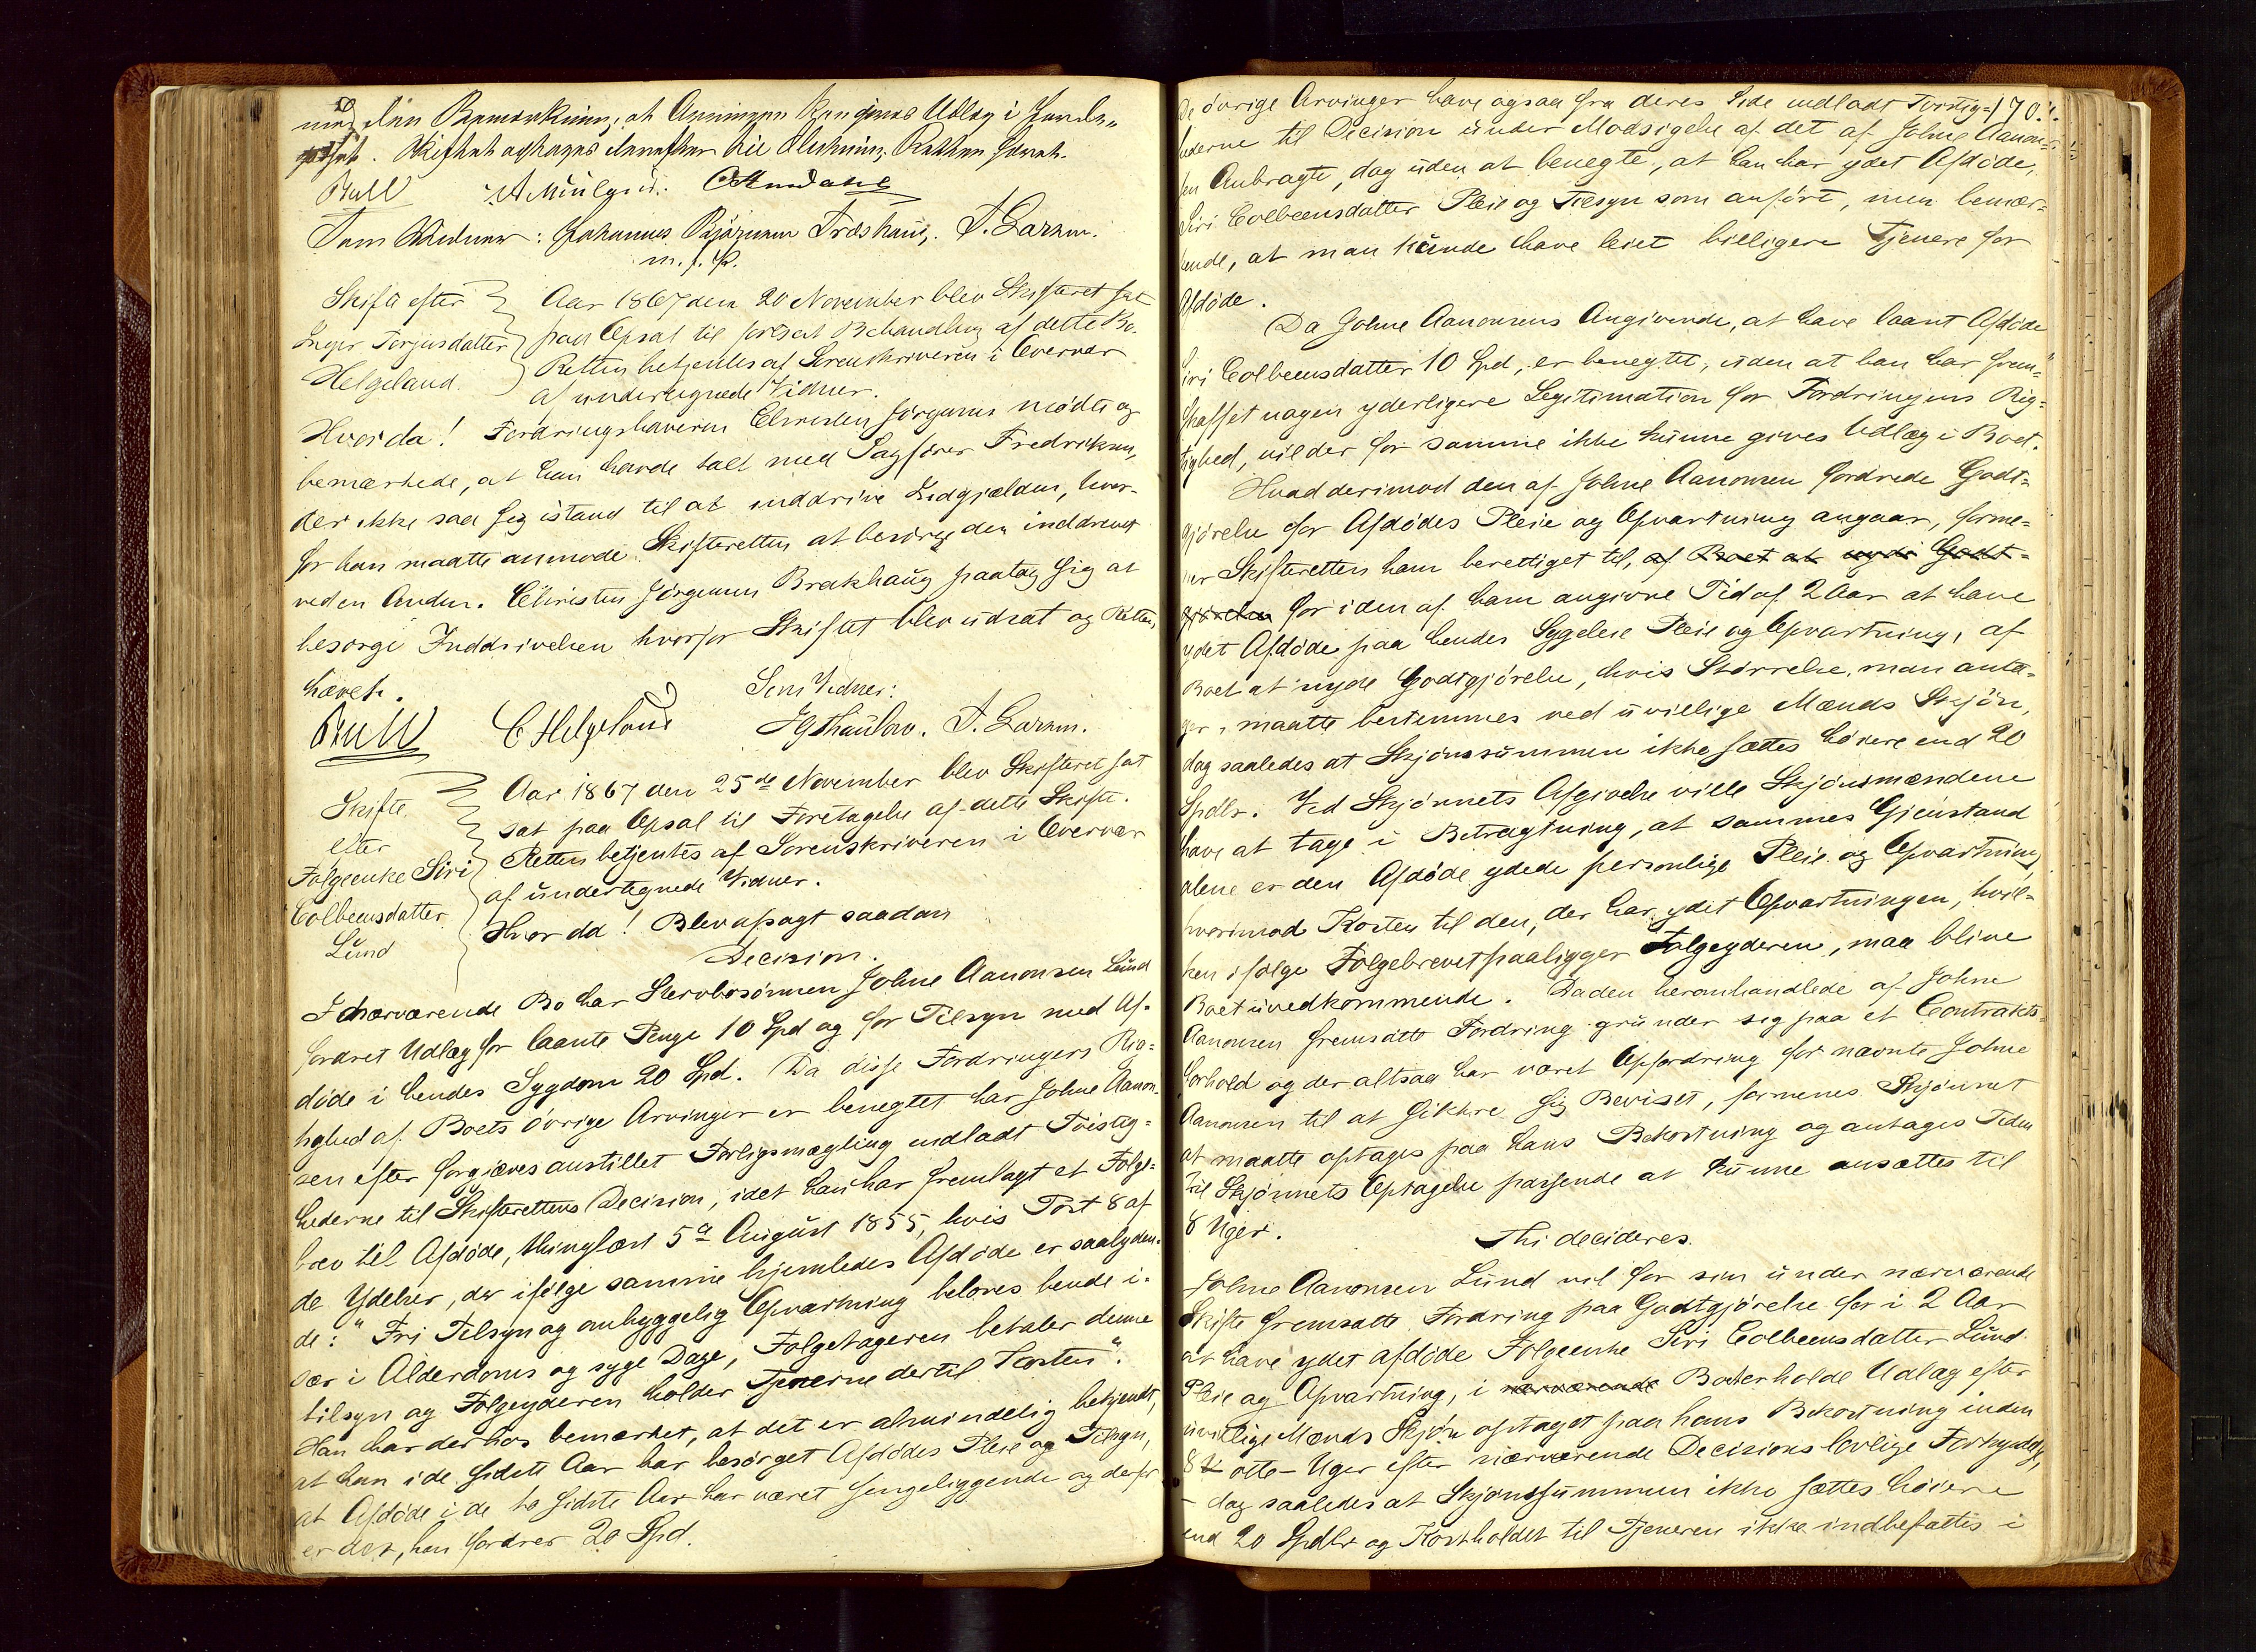 med den Bemærkning, at Arvingen Udlæg i
godset. Skiftet optages derefter til Slutning, Retten hævet.
Bull
Som Vidner: Johannes T. Larsen.
m. f. P.
Skifte efter
Inger Torjusdatter
Helgeland.
Aar 1867 den 20 November blev Skifteret sat
paa Opsal til fortsat Behandling af dette Bo.
Retten betjentes af Sorenskriveren i Overvær
af undertegnede Vidner.
Hvorda! Fordringshaveren Christen Jörgensen mödte og
bemærkede, at han havde talt med Sagförer Fredriksen,
der ikke saa sig istand til at inddrive Indgjælden, hvor-
for han maatte anmode Skifteretten at besörge den inddrevet
ved en Anden. Christen Jörgensen Brækhaug paatog sig at
besörge Inddrivelsen hvorfor Skiftet blev udsat og Retten
hævet.
Som Vidner:
Bull C Helgeland T. Larsen.
Skifte
efter
Folgeenke Siri
Colbeensdatter
Lund
Aar 1867 den 25de November blev Skifteret sat
sat paa Opsal til Foretagelse af dette Skifte.
Retten betjentes af Sorenskriveren i Overvær
af undertegnede Vidner.
Hvor da! Blev afsagt saadan
Decision.
I nærværende Bo har Stervbosönnen Johne Aanonsen Lund
fordret Udlæg for laante Penge 10 Spd og for Tilsyn med Af-
döde i hendes Sygdom 20 Spd. Da disse Fordringers Rig-
tighed af Boets övrige Arvinger er benegtet har Johne Aanon-
sen efter forgjæves anstillet Forligsmægling indladt Tvistig-
hederne til Skifterettens Decision, idet han har fremlagt et Folge-
brev til Afdöde, thinglæst 5te August 1855, hvis Post 8 af
de Ydelser, der ifölge samme hjemledes Afdöde er saalyden-
de: "Fri Tilsyn og omhyggelig Opvartning beloves hende i-
sær i Alderdoms og syge Dage, Folgetageren betaler denne
tilsyn og Folgeyderen holder Tjenerne dertil Kosten".
Han har derhos bemærket, at det er almindelig bekjendt,
at han i de sidste Aar har besörget Afdödes Pleie og Tilsyn,
at Afdöde i de to sidste Aar har været sengeliggende og derfor
er det, han fordrer 20 Spd.
170.
De övrige Arvinger have ogsaa fra deres Side indladt Tvistig-
hederne til Decision under Modsigelse af det af Johne Aanon-
sen Anbragte, dog uden at benegte, at han har ydet Afdöde,
Siri Colbeensdatter Pleie og Tilsyn som anfört, men bemær-
kende, at man kunde have leiet billigere Tjenere for
Afdöde.
Da Johne Aanonsens Angivende, at have laant Afdöde
Siri Colbeensdatter 10 Spd, er benegtet, uden at han har frem-
skaffet nogen yderligere Legitimation for Fordringens Rig-
tighed, vil der for samme ikke kunne gives Udlæg i Boet.
Hvad derimod den af Johne Aanonsen fordrede Godt-
gjörelse for Afdödes Pleie og Opvartning angaar, forme-
ner Skifteretten ham berettiget til, af Boet at nyde Godt-
gjörelse for i den af ham angivne Tid af 2 Aar at have
ydet Afdöde paa hendes Sygeleie Pleie og Opvartning, af
Boet at nyde Godtgjörelse, hvis Störrelse, man anta-
ger, maatte bestemmes ved uvillige Mænds Skjön,
dog saaledes at Skjönssummen ikke sættes höiere end 20
Spdlr. Ved Skjönnets Afgivelse ville Skjönsmændene
have at tage i Betragtning, at sammes Gjenstand
alene er den Afdöde ydede personlige Pleie og Opvartning
hvorimod Kosten til den, der har ydet Opvartningen, hvil-
ken ifölge Folgebrevet paaligger Folgeyderen, maa blive
Boet uvedkommende. Da den heromhandlede af Johne
Aanonsen fremsatte Fordring grunder sig paa et Contrakts-
forhold og der altsaa har været Opfordring for nævnte Johne
Aanonsen til at sikkre sig Beviset, formenes Skjönnet
at maatte optages paa hans Bekostning og antages Tiden
til Skjönnets Optagelse passende at kunne ansættes til
8 Uger.
Thi decideres.
Johne Aanonsen Lund vil for sin under nærværende
Skifte fremsatte Fordring paa Godtgjörelse for i 2 Aar
at have ydet afdöde Folgeenke Siri Colbeensdatter Lund
Pleie og Opvartning, i nærværende Bo erholde Udlæg efter
uvillige Mænds Skjön optaget paa hans Bekostning inden
8 – otte – Uger efter nærværende Decisions lovlige Forkyndelse,
– dog saaledes at Skjönssummen ikke sættes höiere
end 20 Spdlr og Kostholdet til Tjeneren ikke indbefattes i